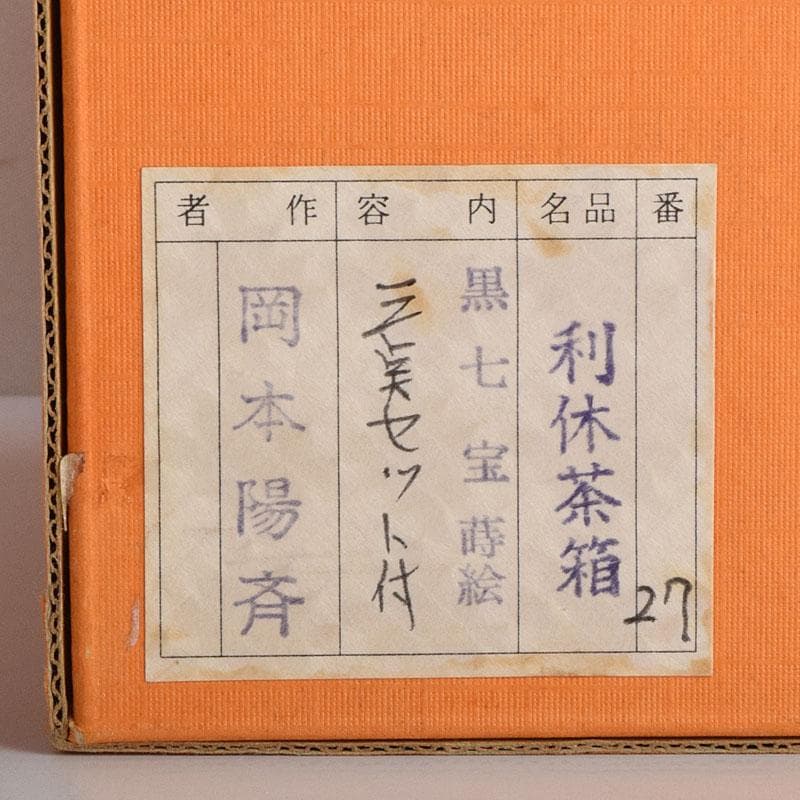 番
品名
内容
作者
27
利休茶箱
黒七宝蒔絵
三点セット付
岡本陽斉